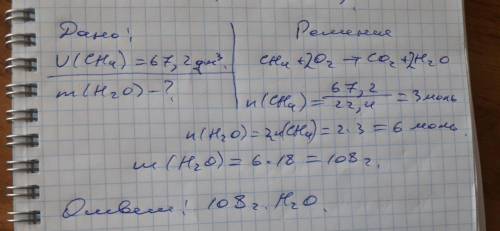 Дано:
Решение
V(CH₄)=67,2 дм³.
m(H₂O)-?
CH₄+2O₂→CO₂+2H₂O
n(CH₄)=67,2/22,4=3моль
n(H₂O)=2n(CH₄)=2·3=6 моль.
m(H₂O)=6·18=108г.
Ответ: 108г. H₂O.